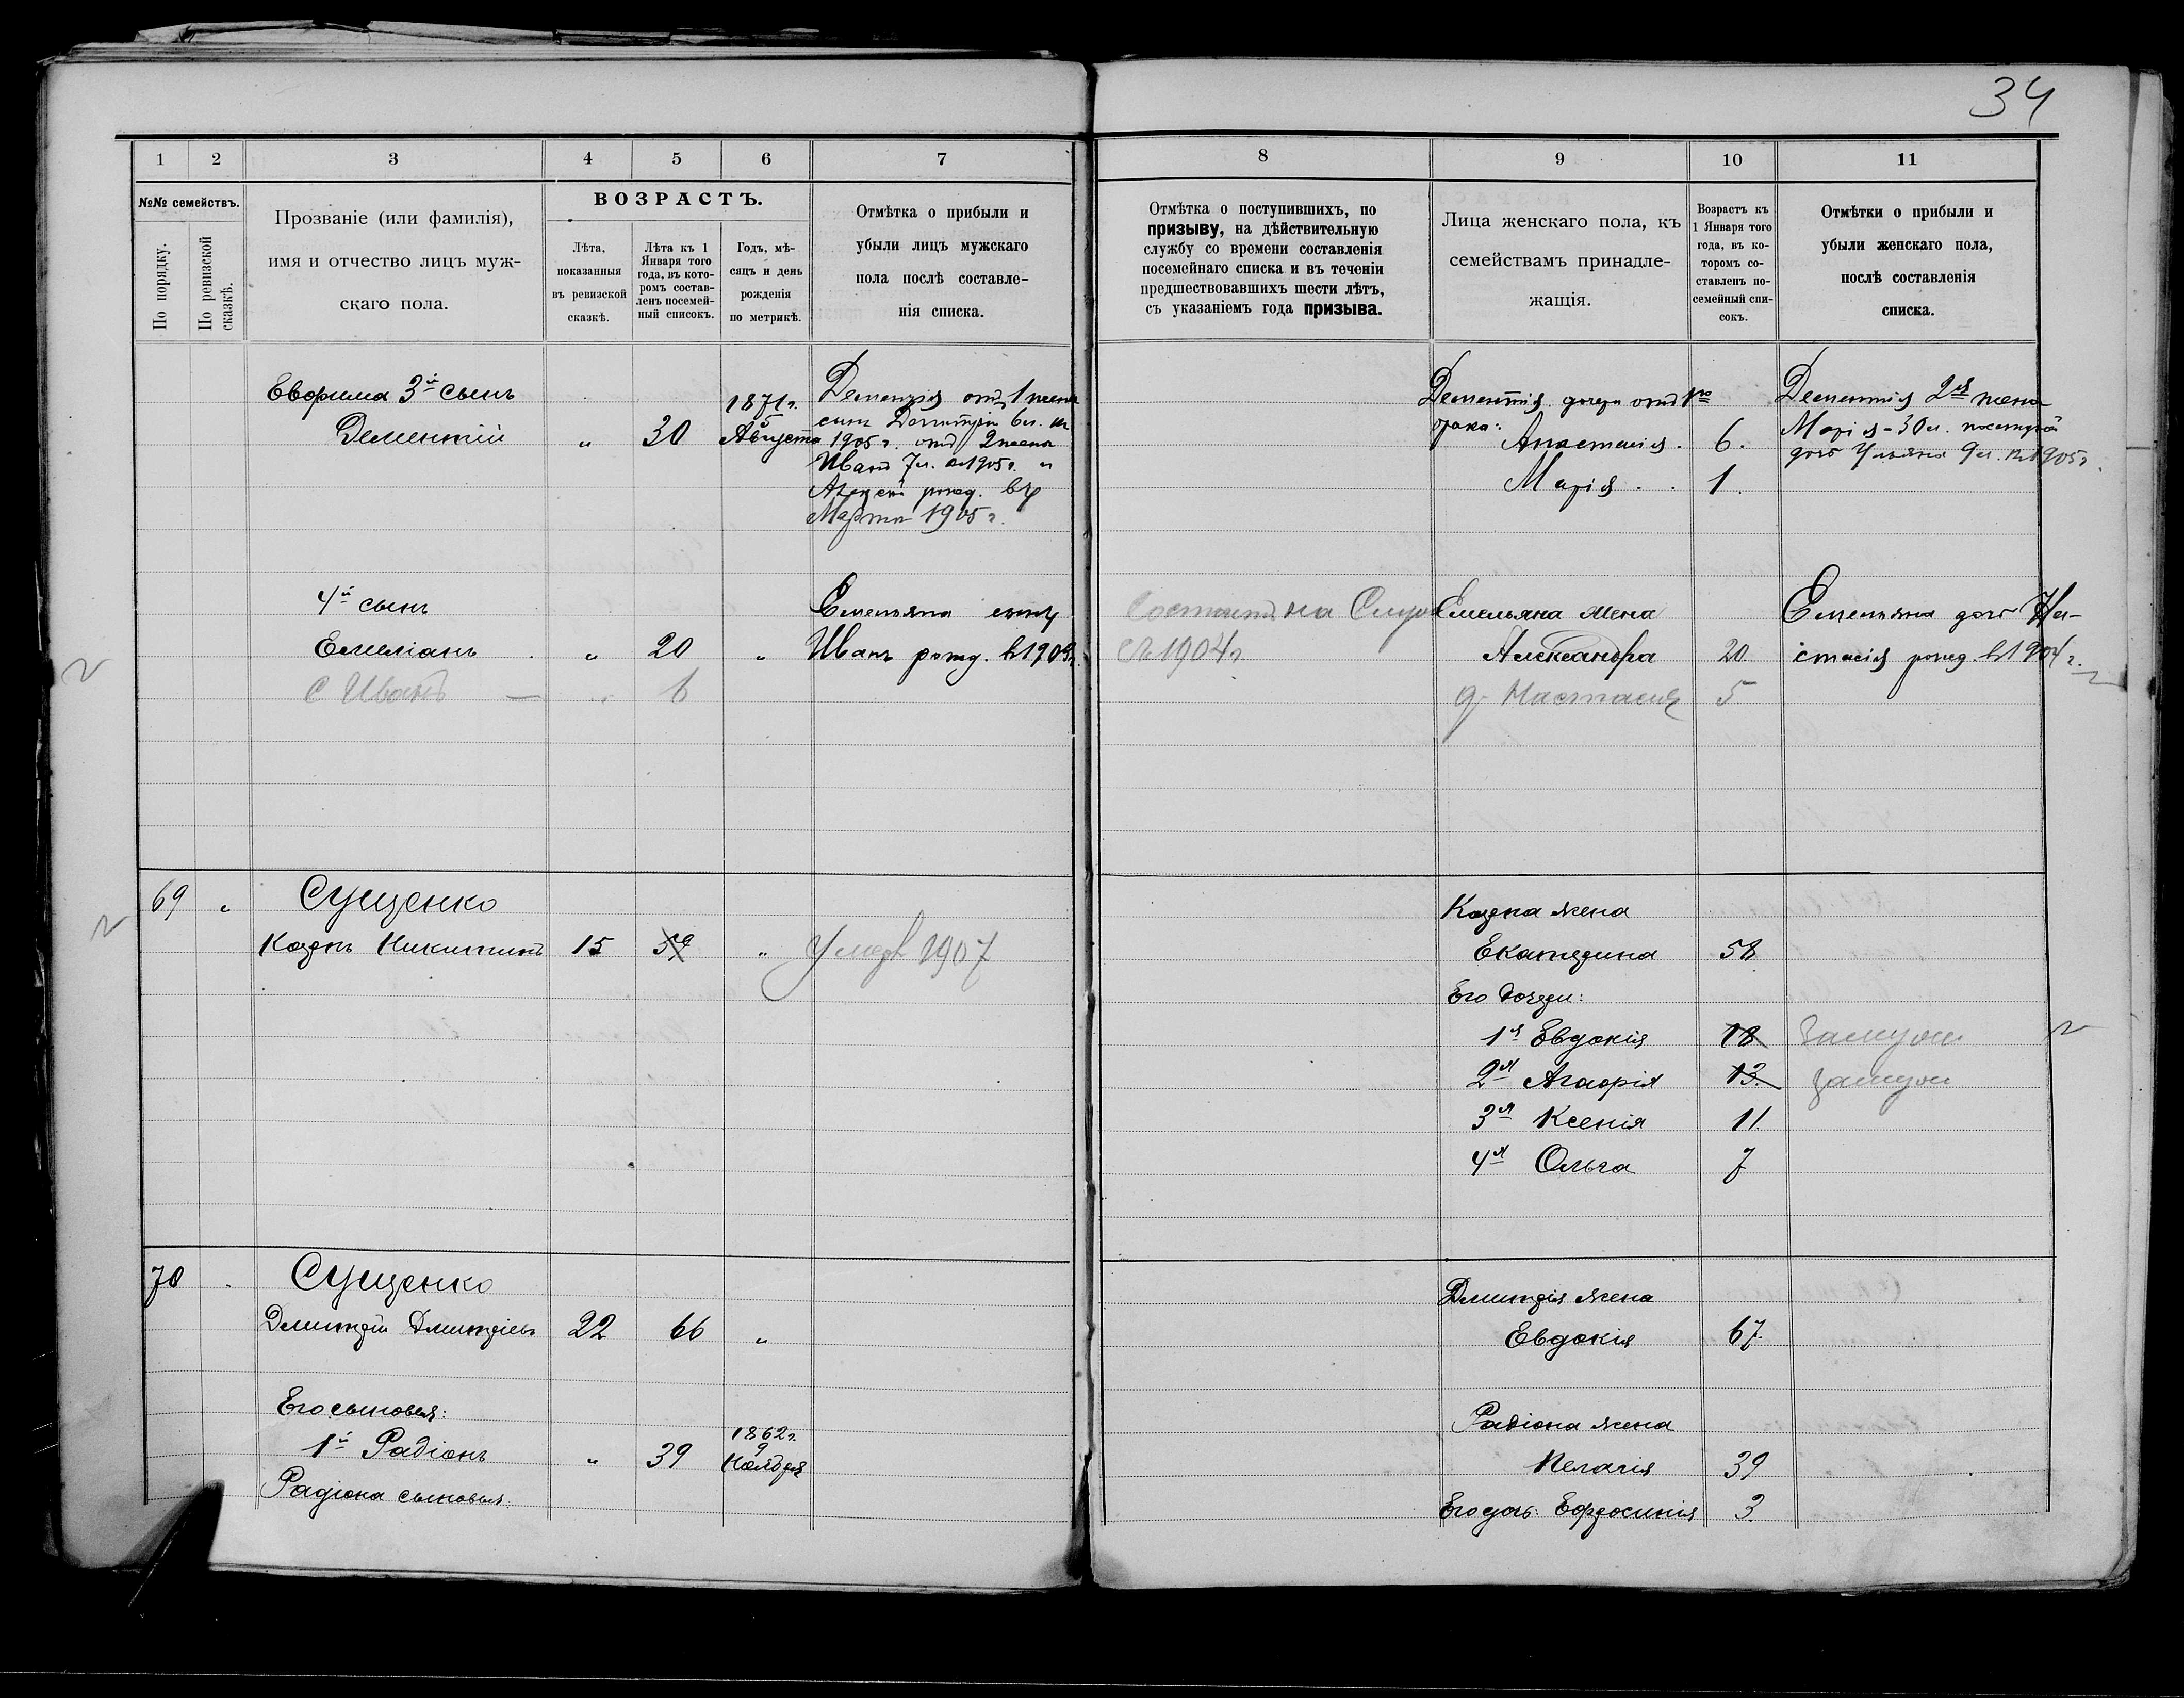 34
1 2 3 4 5 6 7
№№ семействъ.
По порядку.
По ревизской сказкѣ.
Прозваніе (или фамилія),
имя и отчество лицъ муж-
скаго пола.
ВОЗРАСТЪ.
Лѣта,
показанныя
въ ревизской
сказкѣ.
Лѣта къ 1
Января того
года, въ кото-
ромъ состав-
ленъ посемей-
ный списокъ.
Годъ, мѣ-
сяцъ и день
рожденія
по метрикѣ.
Отмѣтка о прибыли и
убыли лицъ мужскаго
пола послѣ составле-
нія списка.
Евфима 3й сынъ
Дементій " 30
1871 г.
8
Августа
Дементія отъ 1 жены
сынъ Дмитрій 6 л. къ
1905 г. отъ 2 жены
Иванъ 7 л. къ 1905 г. и
Алексѣй рожд. въ
Марта 1905 г.
4й сынъ
Емеліанъ " 20 "
Емельяна сынъ
Иванъ рожд. в 1903 г.
с Иванъ — " 6
69 " Сущенко
Карпъ Никитинъ 15 59 " Умеръ 1907
70 Сущенко
Дмитрій Дмитріевъ 22 66 "
Его сыновья:
1й Радіонъ " 39
1862 г.
9
Ноября
Радіона сыновья:
8 9 10 11
Отмѣтка о поступившихъ, по
призыву, на дѣйствительную
службу со времени составленія
посемейнаго списка и въ теченіи
предшествовавшихъ шести лѣтъ,
съ указаніемъ года призыва.
Лица женскаго пола, къ
семействамъ принадле-
жащія.
Возрастъ къ
1 Января того
года, въ ко-
торомъ со-
ставленъ по-
семейный спи-
сокъ.
Отмѣтки о прибыли и
убыли женскаго пола,
послѣ составленія
списка.
Дементія дочери отъ 1го
брака:
Анастасія. 6.
Марія . . 1.
Дементія 2я жена
Марія - 30 л.
дочь Ульяна 9 л. къ 1905 г.
Состоитъ на Служ
съ 1904 г.
Емельяна жена
Александра 20
д. Настасія 5
Емельяна дочь На-
стасія рожд. в 1904 г.
Карпа жена
Екатерина 58
Его дочери:
1я Евдокія 18 Замужем
2я Агафія 13. замужем
3я Ксенія 11.
4я Ольга 7
Дмитрія жена
Евдокія 67.
Радіона жена
Пелагія 39
Его дочь: Ефросинія 3.